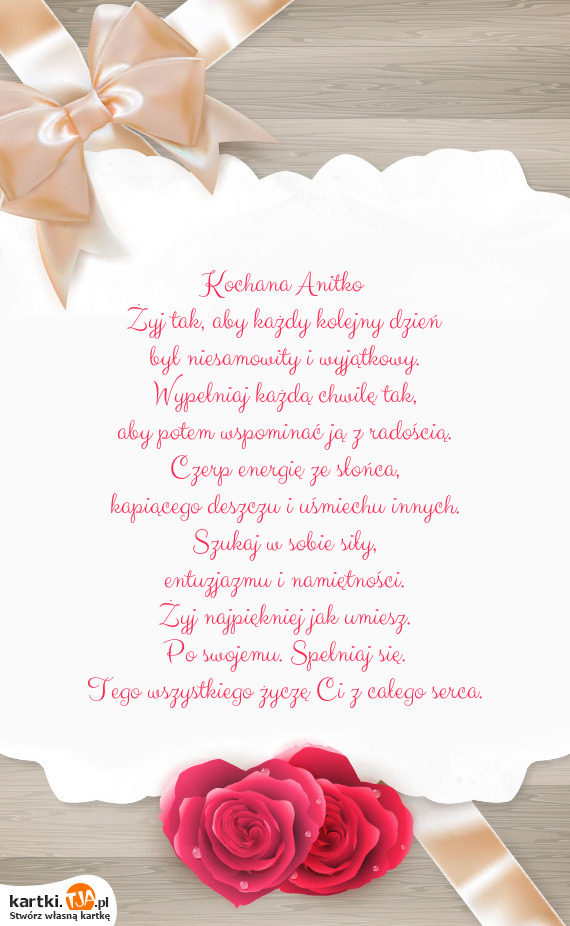 Kochana Anitko
Żyj tak, aby każdy kolejny dzień
był niesamowity i wyjątkowy.
Wypełniaj każdą chwilę tak,
aby potem wspominać ją z radością.
Czerp energię ze słońca,
kapiącego deszczu i uśmiechu innych.
Szukaj w sobie siły,
entuzjazmu i namiętności.
Żyj najpiękniej jak umiesz.
Po swojemu. Spełniaj się.
Tego wszystkiego życzę Ci z całego serca.
kartki.TJA.pl
Stwórz własną kartkę